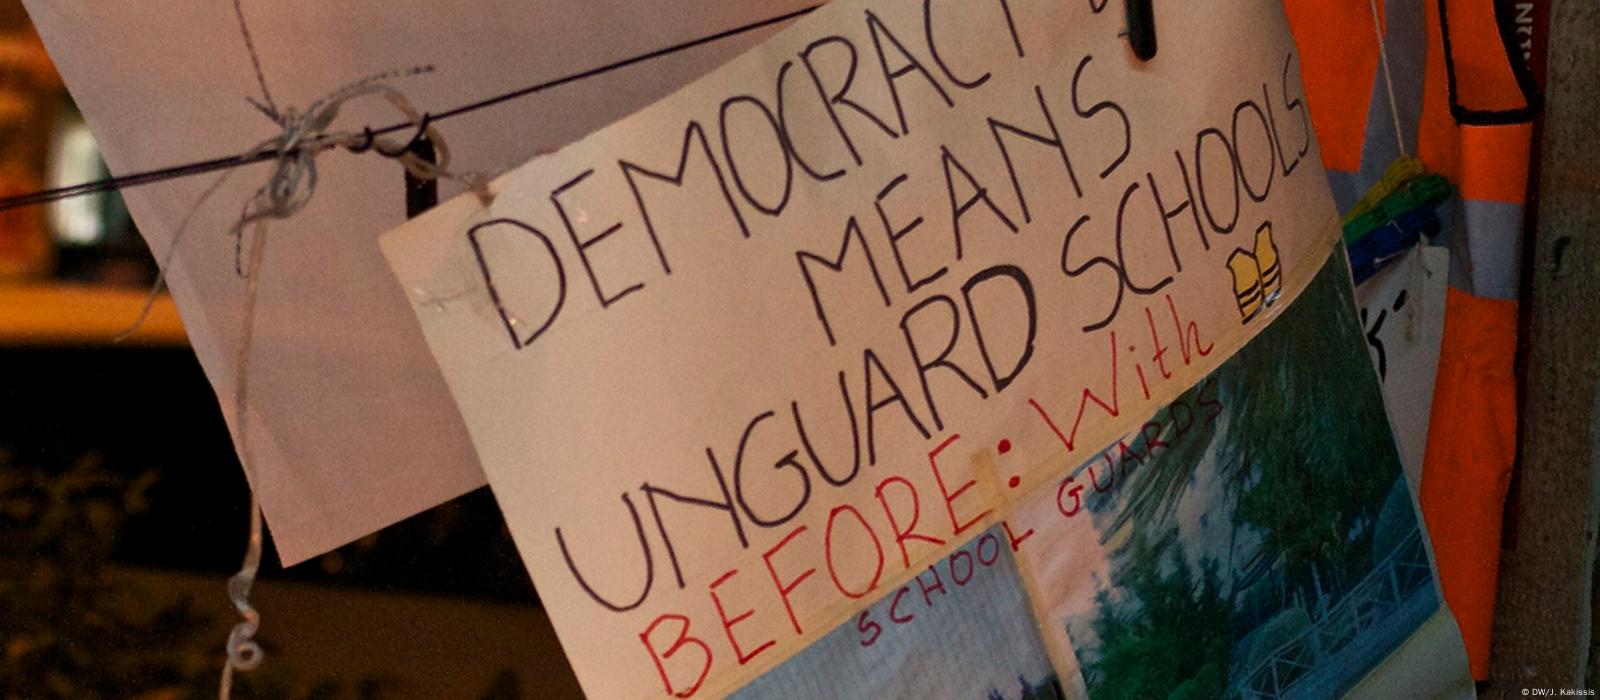 DEMOCRACY
MEANS
UNGUARD SCHOOLS
BEFORE: With
SCHOOL GUARDS
© DW/J. Kakissis